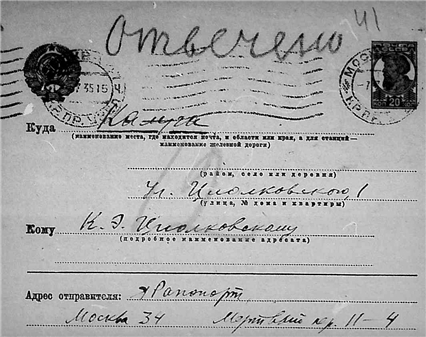 Отвечено
141
МОСКВА
7 35 15 Ч.
20
Куда Калуга
(наименование места, где находится почта, и области или края, а для станций —
наименование железной дороги)
(район, село или деревня)
Ул. Циолковского, 1
(улица, № дома и квартиры)
Кому К. Э. Циолковскому
(подробное наименование адресата)
Адрес отправителя: Рапопорт
Москва 34 Мертвый пр. 11–4